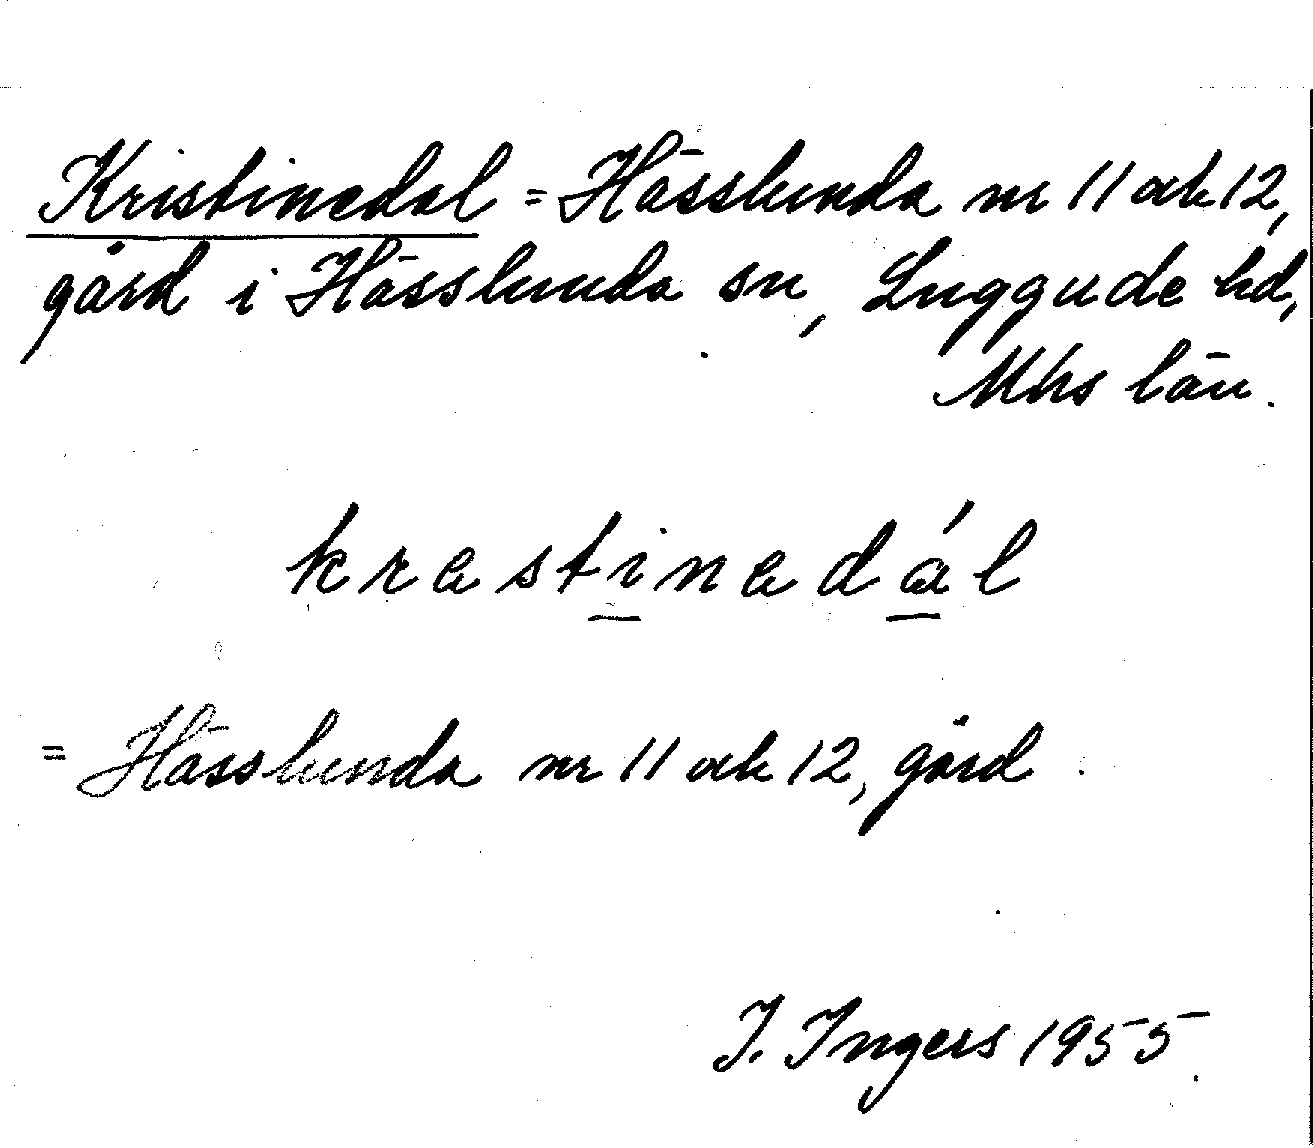 Kristinedal = Hässlunda nr 11 och 12,
gård i Hässlunda sn, Luggude hd,
Mhs län.
krestinedál
= Hässlunda nr 11 och 12, gård
I. Ingers 1955.